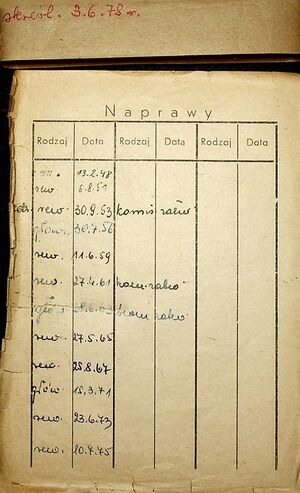 skreśl. 3.6.78 r.
Naprawy
Rodzaj Data Rodzaj Data Rodzaj Data
rew. 13.2.48
rew. 6.8.51
rew. 30.9.53
główn. 30.7.56
rew. 11.6.59
rew. 27.4.61
główn. 28.6.63
rew. 27.5.65
rew. 25.8.67
główn. 15.3.71
rew. 23.6.73
rew. 10.4.75